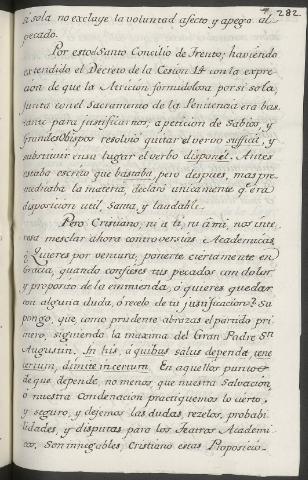 282
si sola no excluye la voluntad afecto y apego al
pecado.
Por esto el Santo Concilio de Trento; haviendo
extendido el Decreto de la Cesion 14 con la expre
cion de que la Atricion formidolosa por si sola,
junta con el Sacramento de la Penitencia era bas
tante para justificarnos; a peticion de Sabios, y
grandes Obispos resolvió quitar el vervo sufficit, y
substituir en su lugar el verbo disponet. Antes
estaba escrito que bastaba, pero despues, mas pre
meditada la materia, declaró unicamente q.e era
disposicion util, Santa, y laudable.
Pero Cristiano, ni a ti, ni á mi, nos inte
resa mesclar ahora controversias Academicas
¿Quieres por ventura, ponerte ciertamente en
Gracia, quando confieses tus pecados con dolor
y proposito de la enmienda, ó quieres quedar
con alguna duda, ó recelo de tu justificacion? Su
pongo, que como prudente abrazas el partido pri
mero, siguiendo la maxima del Gran Padre Sn
Augustin. In his, a quibus salus dependet, tene
certum, dimite incertum. En aquellos puntos
de que depende, no menos, que nuestra Salvacion,
ó nuestra Condenacion practiquemos lo cierto,
y seguro, y dejemos las dudas, rezelos, probabi
lidades, y disputas para los Teatros Academi
cos. Son innegables Cristiano estas Proposicio-